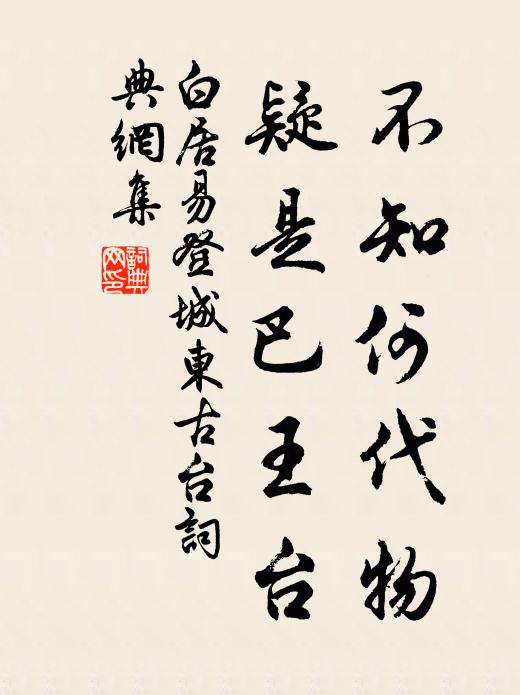 不知何代物
疑是巴王台
白居易登城東古台詞
典網集
詞典
网印